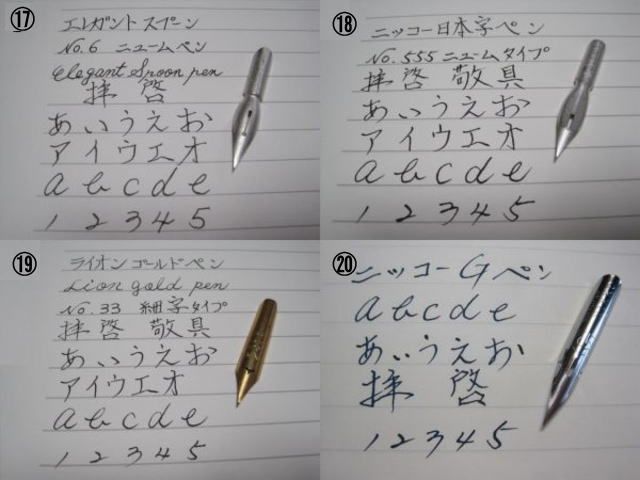 ⑰
エレガント スプーン
No.6 ニュームペン
Elegant Spoon pen
拝啓
あいうえお
アイウエオ
a b c d e
1 2 3 4 5
⑱
ニッコー日本字ペン
No.555 ニュームタイプ
拝啓 敬具
あいうえお
アイウエオ
a b c d e
1 2 3 4 5
⑲
ライオン ゴールドペン
Lion gold pen
No.33 細字タイプ
拝啓 敬具
あいうえお
アイウエオ
a b c d e
1 2 3 4 5
⑳
ニッコー G ペン
a b c d e
あいうえお
拝啓
1 2 3 4 5